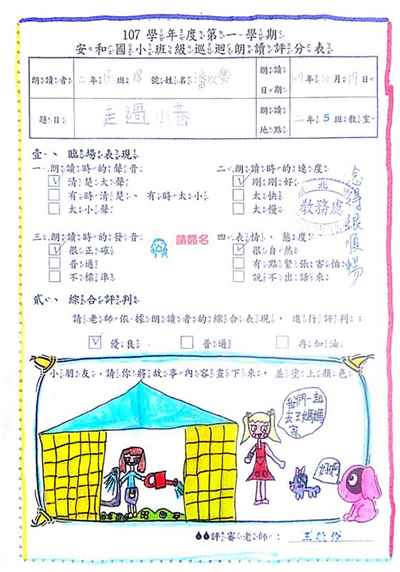 107學年度第一學期
安和國小班級巡迴朗讀評分表
朗讀者 二年 班18號姓名 朗讀日期 年10月 日
題目 走過小巷 朗讀地點 二年5班教室
壹、臨場表現
一、朗讀時的聲音 二、朗讀時的速度
清楚大聲 剛剛好
有時清楚、有時太小 太快
太小聲 太慢
教務處
念得很順暢
三、朗讀時的發音 四、表情、態度
很正確 很自然
普通 有點緊張害怕
不標準 說不出話來
請簽名
貳、綜合評判
請老師依據朗讀者的綜合表現,進行評判
優良 普通 再加油
小朋友,請你將故事內容畫下來,並塗上顏色
我們一起去王媽媽家
好啊
評審老師: